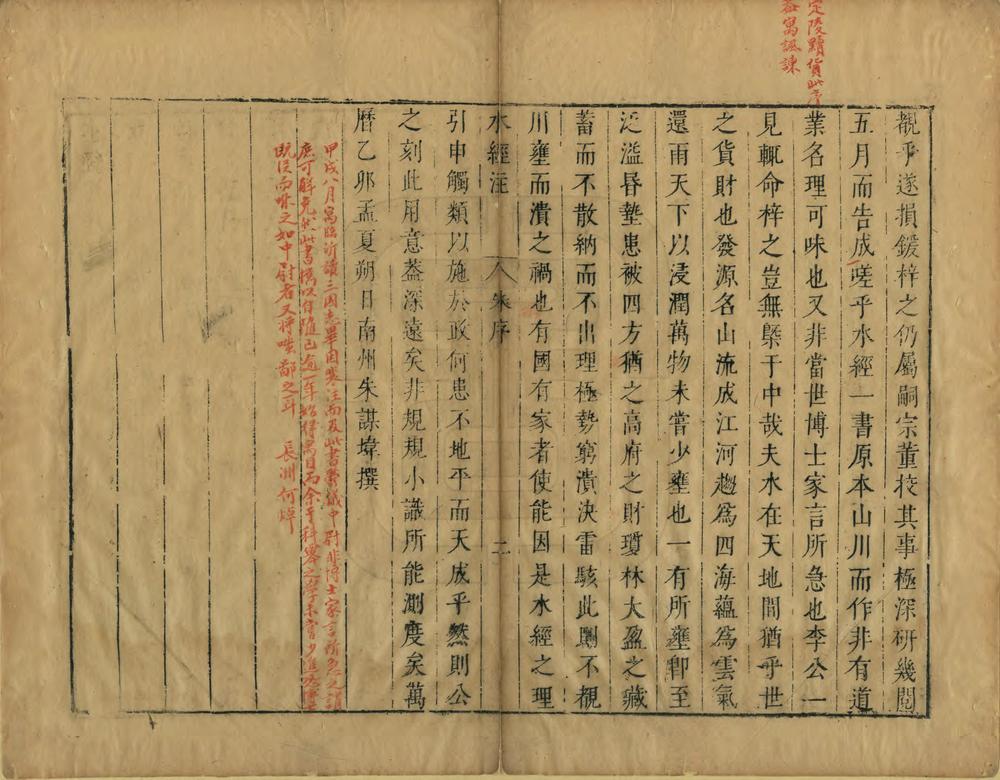 定陵黷貨此序
蓋寓諷諫
覩乎遂損鍰梓之仍屬嗣宗董校其事極深研幾閱
五月而告成嗟乎水經一書原本山川而作非有道
業名理可味也又非當世博士家言所急也李公一
見輒命梓之豈無槩于中哉夫水在天地間猶乎世
之貨財也發源名山流成江河趨爲四海蘊爲雲氣
還雨天下以浸潤萬物未嘗少壅也一有所壅卽至
泛溢昏墊患被四方猶之高府之財瓊林大盈之藏
蓄而不散納而不出理極勢窮潰決雷駭此則不覩
川壅而潰之禍也有國有家者使能因是水經之理
水經注 朱序 二
引申觸類以施於政何患不地平而天成乎然則公
之刻此用意蓋深遠矣非規規小識所能測度矣萬
曆乙卯孟夏朔日南州朱謀㙔撰
甲戌八月寓臨沂讀三國志畢因裴注而及此書鬱儀中尉非博士家言所急之誚
庶可解免然此書攜以自隨已逾一年始得寓目而余于科舉之學未嘗少進
既從而哧之如中尉者又將嗤鄙之耳 長洲何焯